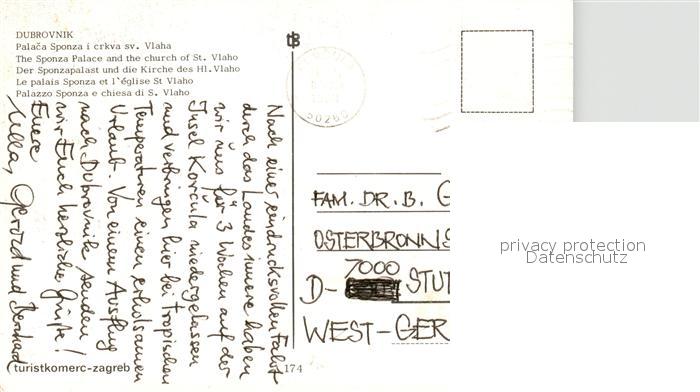 DUBROVNIK
Palača Sponza i crkva sv. Vlaha
The Sponza Palace and the church of St. Vlaho
Der Sponzapalast und die Kirche des Hl. Vlaho
Le palais Sponza et l'église St Vlaho
Palazzo Sponza e chiesa di S. Vlaho
Nach einer eindrucksvollen Fahrt
durch das Landesinnere haben
wir uns für 3 Wochen auf der
Insel Korčula niedergelassen
und verbringen hier bei tropischen
Temperaturen einen erholsamen
Urlaub. Von einem Ausflug
nach Dubrovnik senden
wir Euch herzliche Grüße!
Euere
Gerård und Bernhard
turistkomerc-zagreb
174
50260
FAM. DR. B. G
OSTERBRONNS
7000
D- STUT
WEST-GER
privacy protection
Datenschutz